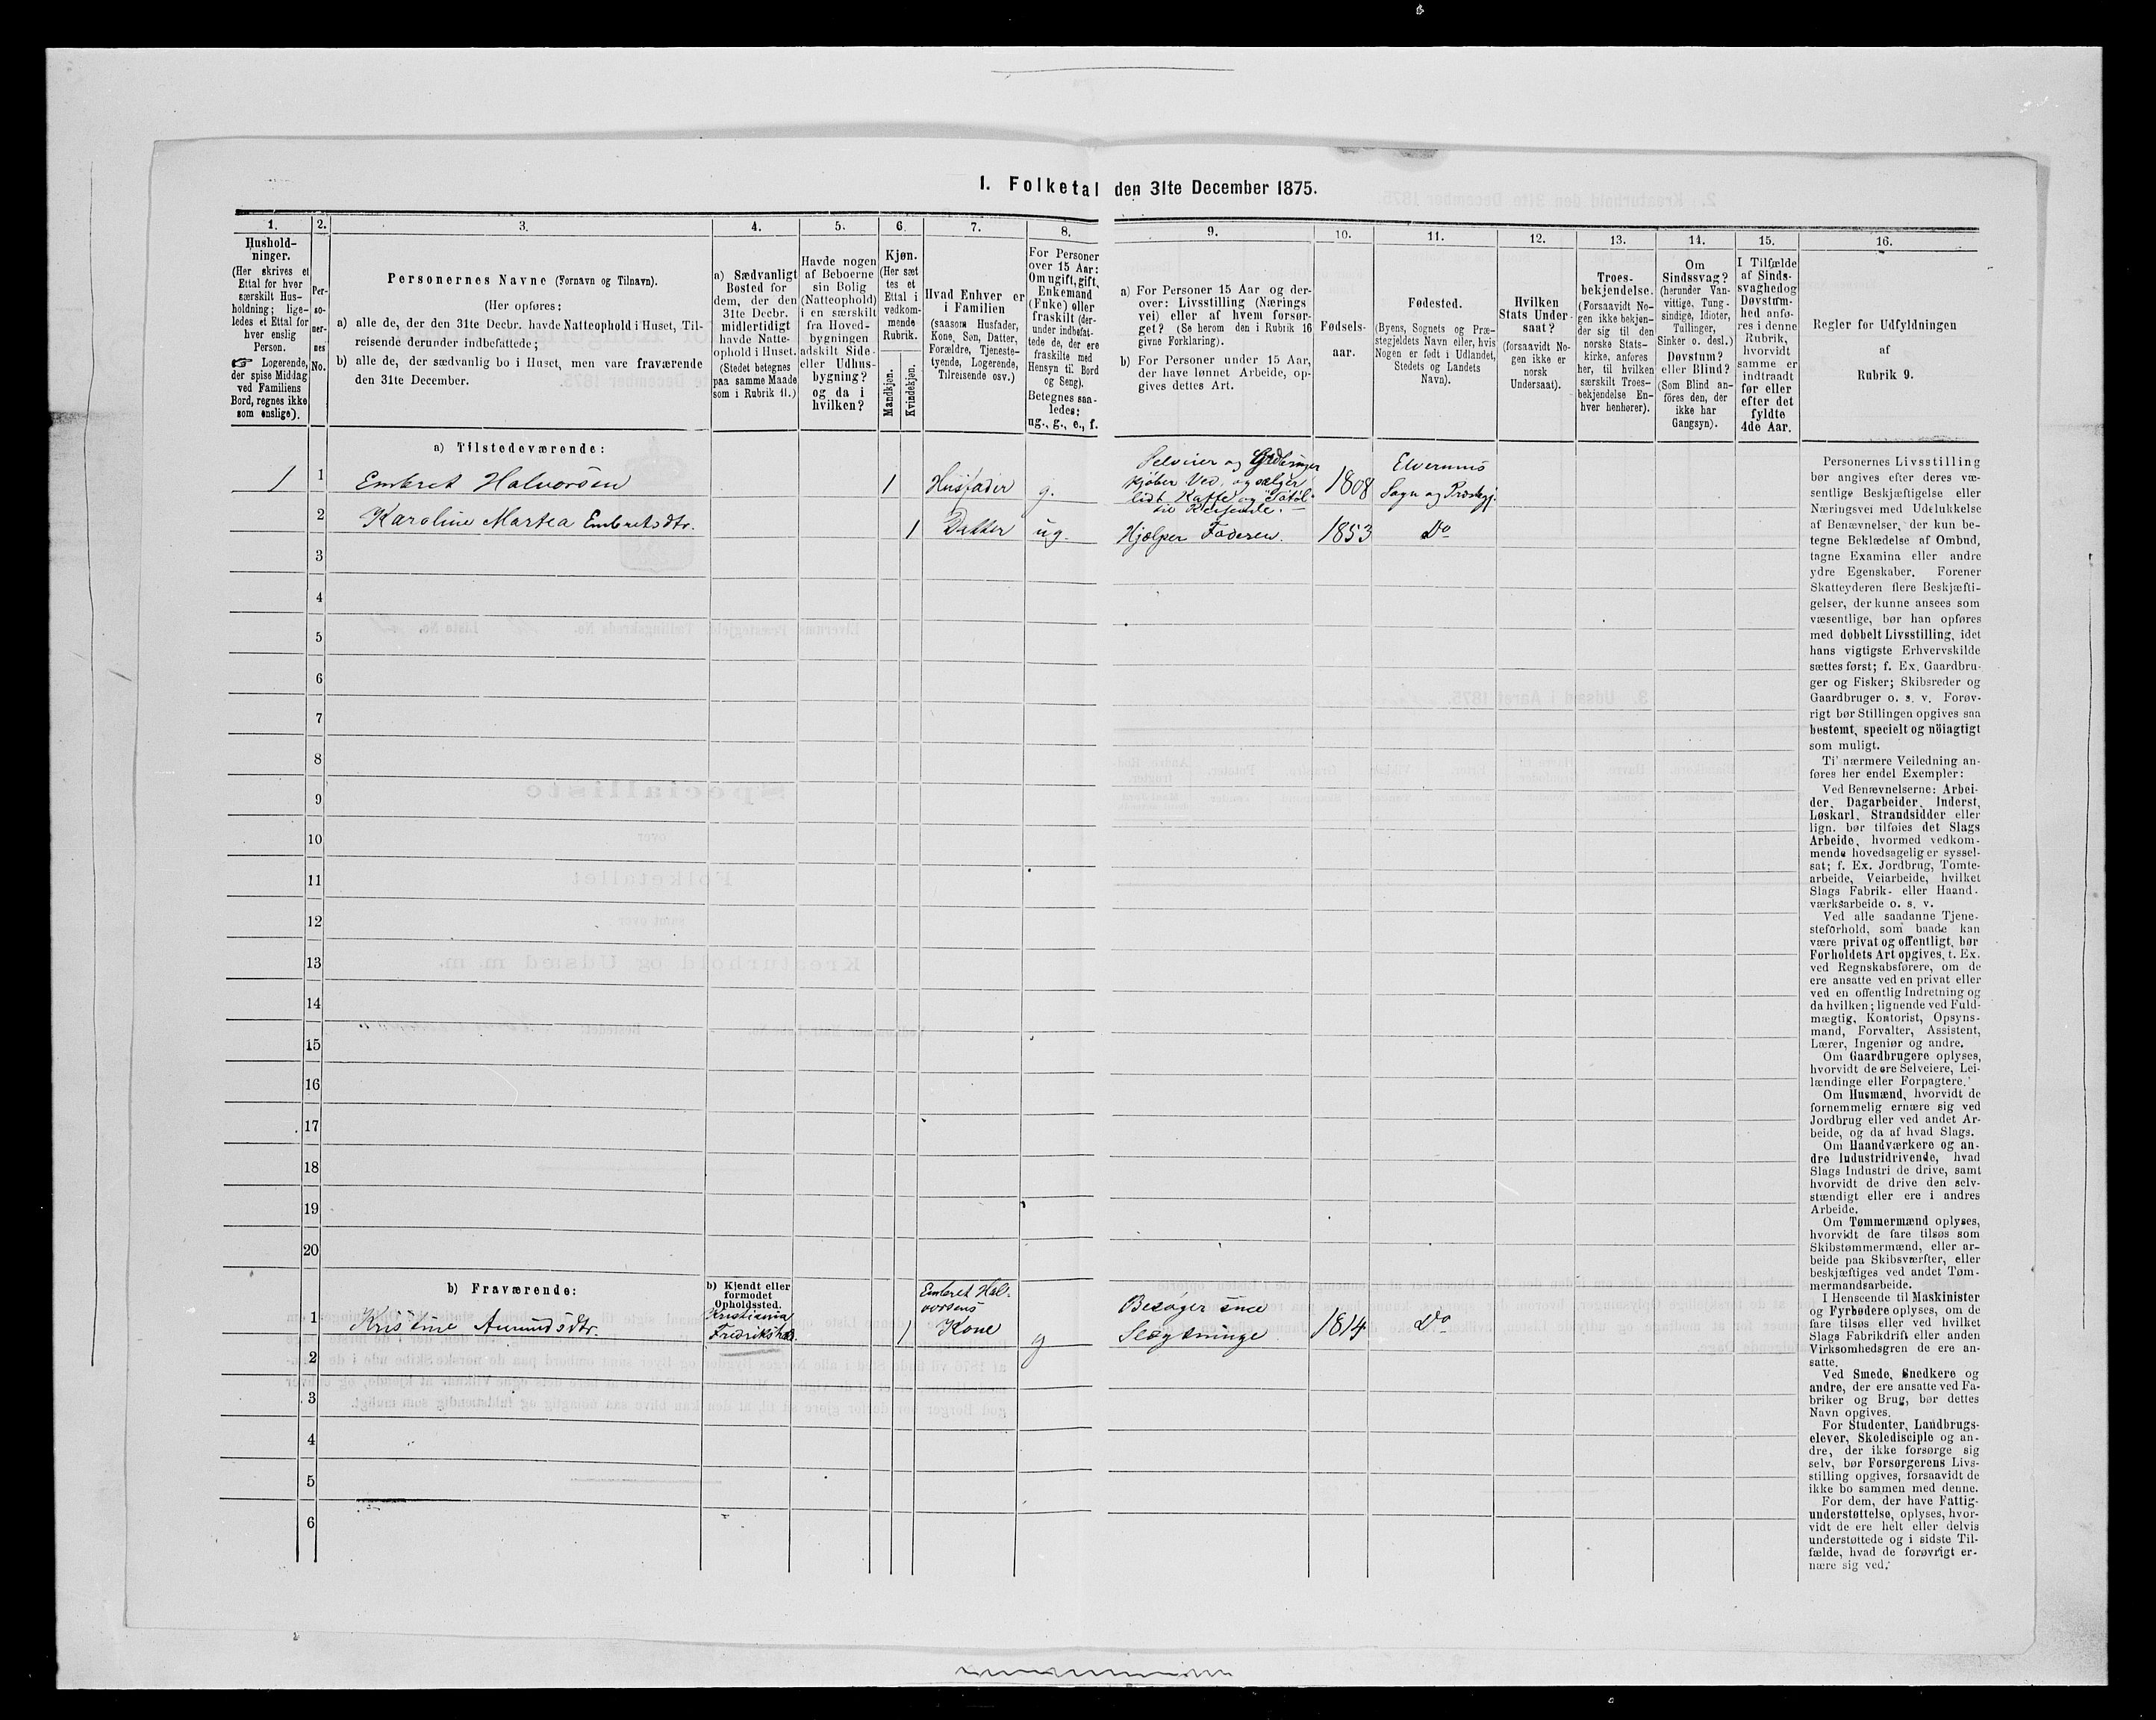 I. Folketal den 31te December 1875.
1.
Hushold-
ninger.
(Her skrives et
Ettal for hver
særskilt Hus-
holdning; lige-
ledes et Ettal for
hver enslig
Person.
☞ Logerende,
der spise Middag
ved Familiens
Bord, regnes ikke
som enslige).
2.
Per-
so-
ner-
nes
No.
3.
Personernes Navne (Fornavn og Tilnavn).
(Her opføres:
a) alle de, der den 31te Decbr. havde Natteophold i Huset, Til-
reisende derunder indbefattede;
b) alle de, der sædvanlig bo i Huset, men vare fraværende
den 31te December.
4.
a) Sædvanligt
Bosted for
dem, der den
31te Decbr.
midlertidigt
havde Natte-
ophold i Huset.
(Stedet betegnes
paa samme Maade
som i Rubrik 11.)
5.
Havde nogen
af Beboerne
sin Bolig
(Natteophold)
i en særskilt
fra Hoved-
bygningen
adskilt Side-
eller Udhus-
bygning?
og da i
hvilken?
6.
Kjøn.
(Her sæt
tes et
Ettal i
vedkom-
mende
Rubrik.
Mandkjøn.
Kvindekjøn.
7.
Hvad Enhver er
i Familien
(saasom Husfader,
Kone, Søn, Datter,
Forældre, Tjeneste-
tyende, Logerende,
Tilreisende osv.)
8.
For Personer
over 15 Aar:
Om ugift, gift,
Enkemand
(Enke) eller
fraskilt (der-
under indbefat-
tede de, der ere
fraskilte med
Hensyn til Bord
og Seng).
Betegnes saa-
ledes:
ug., g., e., f.
9.
a) For Personer 15 Aar og der-
over: Livsstilling (Nærings
vei) eller af hvem forsør-
get? (Se herom den i Rubrik 16
givne Forklaring).
b) For Personer under 15 Aar,
der have lønnet Arbeide, op-
gives dettes Art.
10.
Fødsels-
aar.
11.
Fødested.
(Byens, Sognets og Præ-
stegjeldets Navn eller, hvis
Nogen er født i Udlandet,
Stedets og Landets
Navn).
12.
Hvilken
Stats Under-
saat?
(forsaavidt No-
gen ikke er
norsk
Undersaat).
13.
Troes-
bekjendelse.
(Forsaavidt No-
gen ikke bekjen-
der sig til den
norske Stats-
kirke, anføres
her, til hvilken
særskilt Troes-
bekjendelse En-
hver henhører).
14.
Om
Sindssvag?
(herunder Van-
vittige, Tung-
sindige, Idioter,
Tullinger,
Sinker o. desl.)
Døvstum?
eller Blind?
(Som Blind an-
föres den, der
ikke har
Gangsyn).
15.
I Tilfælde
af Sinds-
svaghed og
Døvstum-
hed anfø-
res i denne
Rubrik,
hvorvidt
samme er
indtraadt
før eller
efter det
fyldte
4de Aar.
16.
Regler for Udfyldningen
af
Rubrik 9.
a) Tilstedeværende:
1 1 Embret Halvorsen 1 Husfader g. Selveier og
kjøber Ved, og sælger
lidt Kaffe og
til Reisende. 1808 Elverums
Sogn og Præstegj.
2 Karoline Martea Embretsdtr. 1 Datter ug. Hjelper Faderen. 1853 Do
3
4
5
6
7
8
9
10
11
12
13
14
15
16
17
18
19
20
b) Fraværende:
b) Kjendt eller
formodet
Opholdssted.
1 Kristine Amundsdtr. Kristiania
Fredriksh. 1 Embret Hal-
vorsens
Kone g Besøger sine
Slegtninge 1814 Do
2
3
4
5
6
Personernes Livsstilling
bør angives efter deres væ-
sentlige Beskjæftigelse eller
Næringsvei med Udelukkelse
af Benævnelser, der kun be-
tegne Beklædelse af Ombud,
tagne Examina eller andre
ydre Egenskaber. Forener
Skatteyderen flere Beskjæfti-
gelser, der kunne ansees som
væsentlige, bør han opføres
med dobbelt Livsstilling, idet
hans vigtigste Erhvervskilde
sættes først; f. Ex. Gaardbru-
ger og Fisker; Skibsreder og
Gaardbruger o. s. v. Forøv-
rigt bør Stillingen opgives saa
bestemt, specielt og nöiagtigt
som muligt.
Til nærmere Veiledning an-
føres her endel Exempler:
Ved Benævnelserne: Arbei-
der, Dagarbeider, Inderst,
Løskarl, Strandsidder eller
lign. bør tilføies det Slags
Arbeide, hvormed vedkom-
mende hovedsagelig er syssel-
sat; f. Ex. Jordbrug, Tomte-
arbeide, Veiarbeide, hvilket
Slags Fabrik- eller Haand-
værksarbeide o. s. v.
Ved alle saadanne Tjene-
steforhold, som baade kan
være privat og offentligt, bør
Forholdets Art opgives, f. Ex.
ved Regnskabsførere, om de
ere ansatte ved en privat eller
ved en offentlig Indretning og
da hvilken; lignende ved Fuld-
mægtig, Kontorist, Opsyns-
mand, Forvalter, Assistent,
Lærer, Ingeniør og andre.
Om Gaardbrugere oplyses,
hvorvidt de ere Selveiere, Lei-
lændinge eller Forpagtere.
Om Husmænd, hvorvidt de
fornemmelig ernære sig ved
Jordbrug eller ved andet Ar-
beide, og da af hvad Slags.
Om Haandværkere og an-
dre Industridrivende, hvad
Slags Industri de drive, samt
hvorvidt de drive den selv-
stændigt eller ere i andres
Arbeide.
Om Tømmermænd oplyses,
hvorvidt de fare tilsøs som
Skibstømmermænd, eller ar-
beide paa Skibsværfter, eller
beskjæftiges ved andet Töm-
mermandsarbeide.
I Henseende til Maskinister
og Fyrbødere oplyses, om de
fare tilsøs eller ved hvilket
Slags Fabrikdrift eller anden
Virksomhedsgren de ere an-
satte.
Ved Smede, Snedkere og
andre, der ere ansatte ved Fa-
briker og Brug, bør dettes
Navn opgives.
For Studenter, Landbrugs-
elever, Skoledisciple og an-
dre, der ikke forsørge sig
selv, bør Forsørgerens Livs-
stilling opgives, forsaavidt de
ikke bo sammen med denne.
For dem, der have Fattig-
understøttelse, oplyses, hvor-
vidt de ere helt eller delvis
understøttede og i sidste Til-
fælde, hvad de forøvrigt er-
nære sig ved.